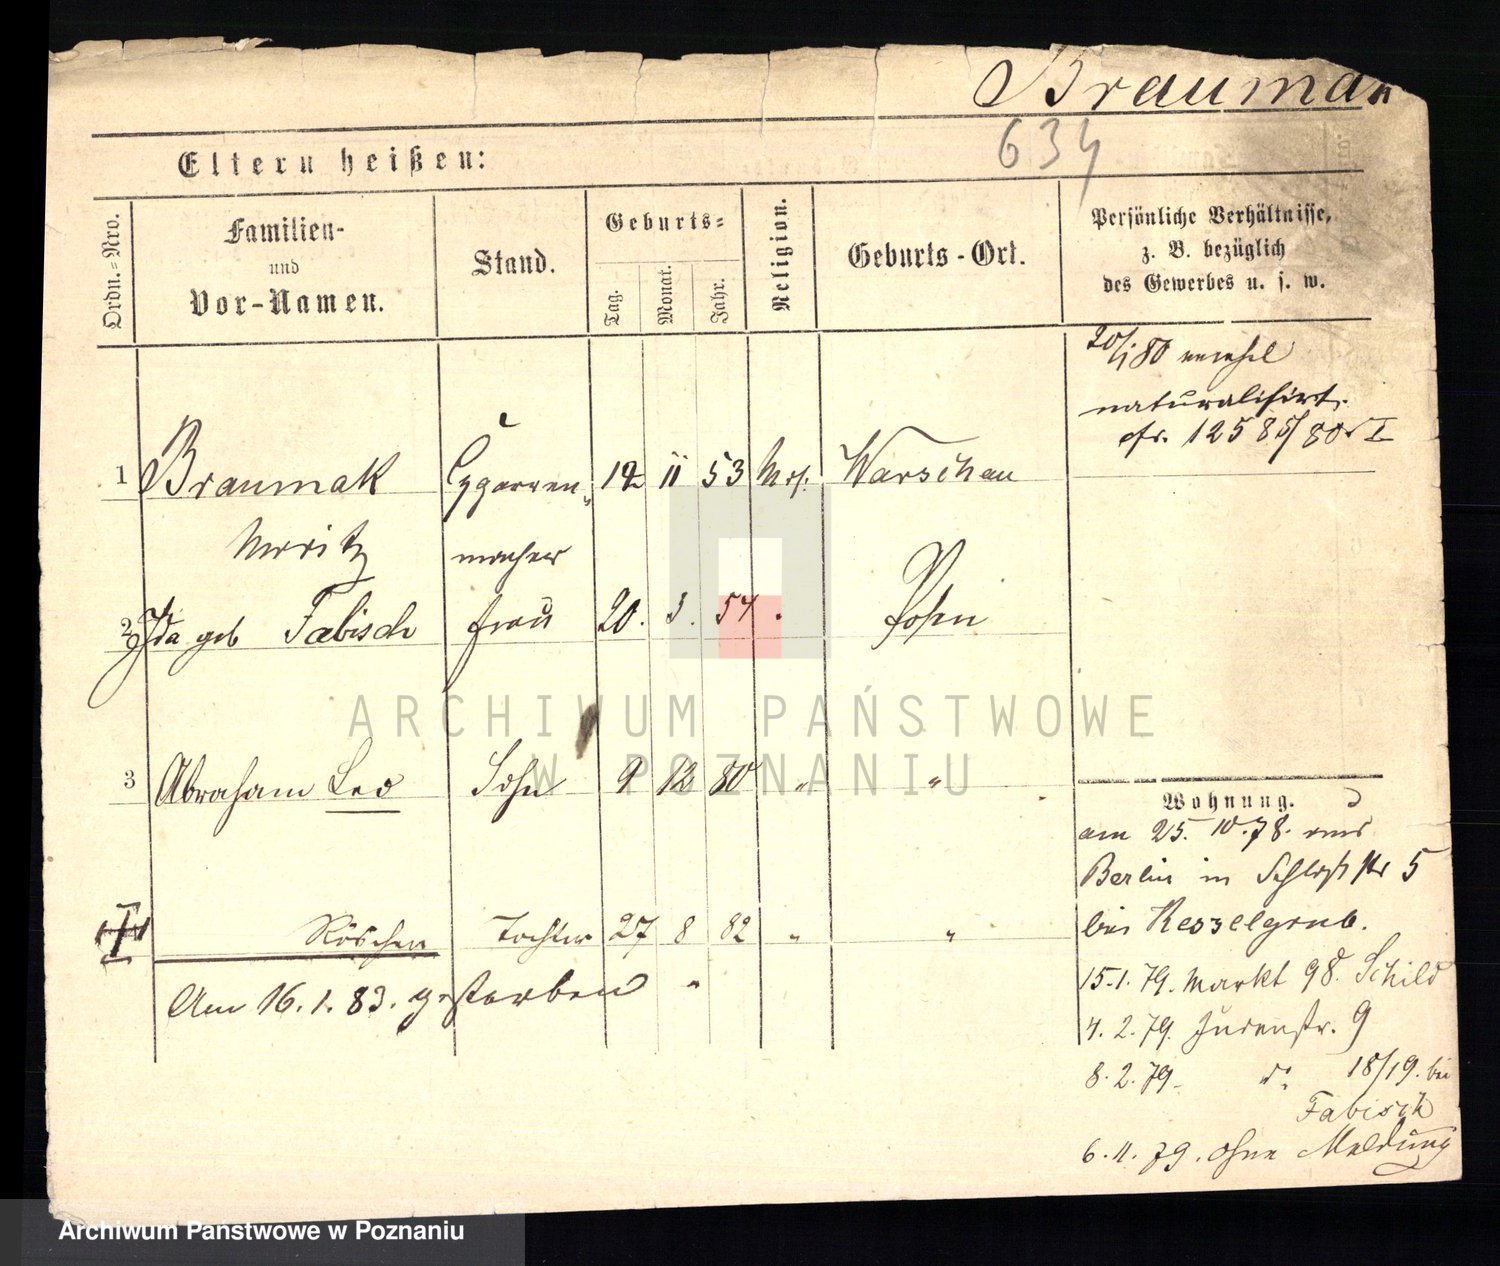 Braumak
634
Eltern heißen:
Ordn.-Nro.
Familien-
und
Vor-Namen.
Stand.
Geburts-
Tag.
Monat.
Jahr.
Religion.
Geburts-Ort.
Persönliche Verhältnisse,
z. B. bezüglich
des Gewerbes u. s. w.
20/1 80
naturalisirt.
cfr. 12585/80 I
1 Braumak Cygarren- 12 11 53 Mos. Warschau
Moritz macher
2 Ida geb Fabisch Frau 20. 3. 54 Posen
3 Abraham Leo Sohn 9 12 80 " "
Röschen Tochter 27 8 82 " "
Am 16.1.83. gestorben "
Wohnung.
am 25.10.78. aus
Berlin in Schloßstr 5
bei Kesselgrub.
15.1.79. Markt 98. Schild
4.2.79. Judenstr. 9
8.2.79. do 18/19. bei
Fabisch
6.11.79. ohne Meldung
ARCHIWUM PAŃSTWOWE
W POZNANIU
Archiwum Państwowe w Poznaniu